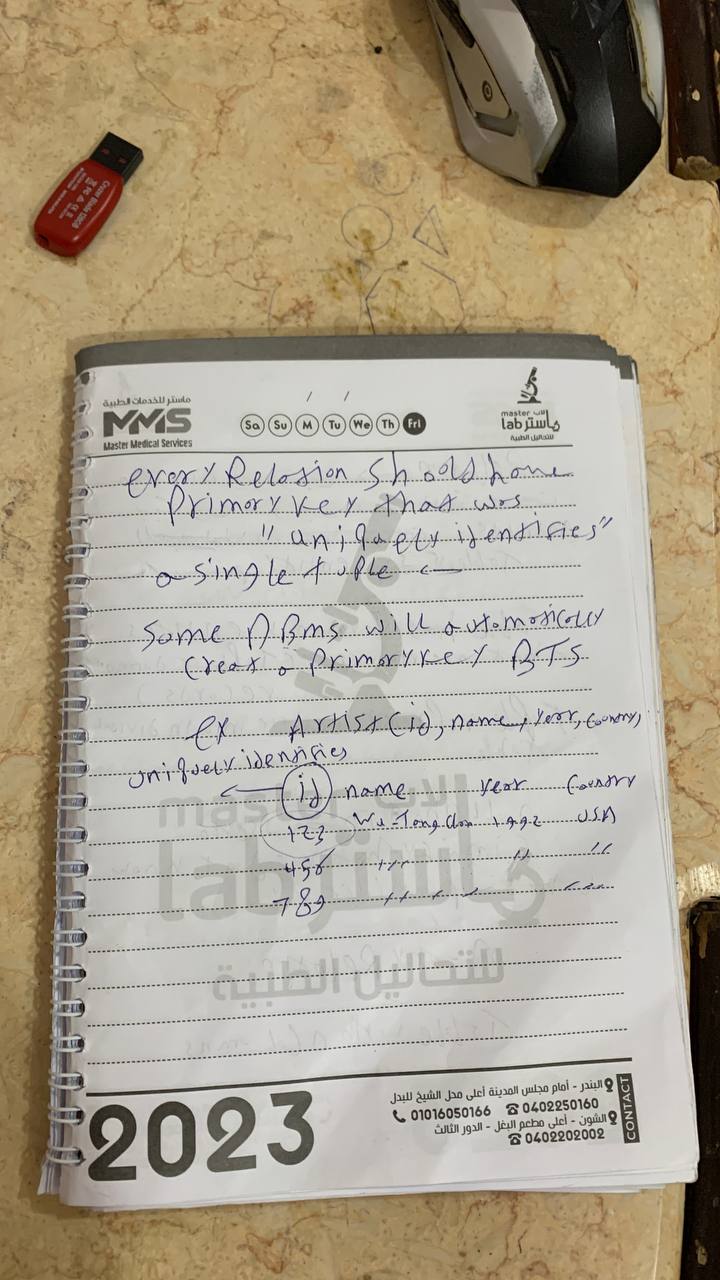 ماستر للخدمات الطبية
MMS
Master Medical Services
/ /
Sa Su M Tu We Th Fri
master لاب
ماسترlab
للتحاليل الطبية
every Relation should have
Primary key that was
"uniquely identifies"
a single tuple ←
Some DBms will automatically
Creat a Primary key BTS
ex Artist(id, name, year, Country)
uniquely identifies
← id name year Country
123 Wu-Tang Clan 1992 USA
456 " "
789
master لاب
ماسترlab
للتحاليل الطبية
2023
البندر - أمام مجلس المدينة أعلى محل الشيخ للبدل
01016050166 0402250160
الشون - أعلى مطعم البغل - الدور الثالث
0402202002
CONTACT